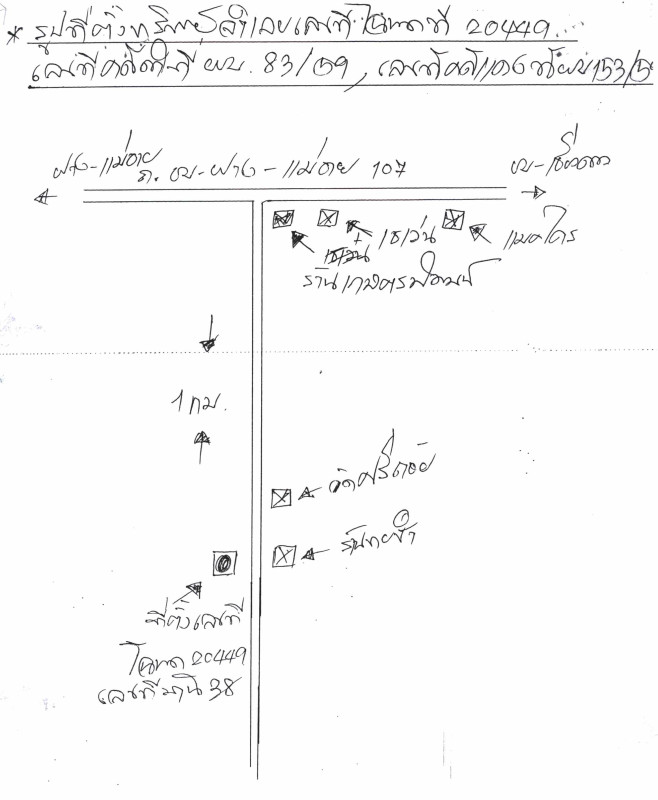 * รูปที่ตั้งทรัพย์ลำเลขเลขที่ โฉนดที่ 20449
เลขที่คดีดำที่ ผบ. 83/59, เลขที่คดีแดงที่ ผบ 153/5
ฝาง-แม่อาย
ถ. ชม-ฝาง-แม่อาย 107
ชม-เชียงดาว
เซเว่น
แมคโคร
ร้านเกษตร
1 กม.
วัดศรีดอย
ที่ตั้งเลขที่
โฉนด 20449
เลขที่บ้าน 38